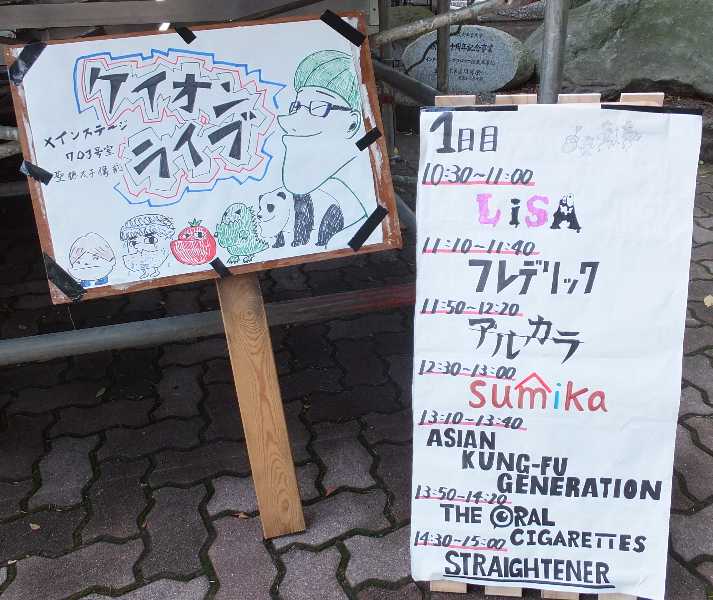 ケイオン
ライブ
メインステージ
703号室
聖徳太子像前
1日目
10:30~11:00
LiSA
11:10~11:40
フレデリック
11:50~12:20
アルカラ
12:30~13:00
sumika
13:10~13:40
ASIAN
KUNG-FU
GENERATION
13:50~14:20
THE ORAL
CIGARETTES
14:30~15:00
STRAIGHTENER